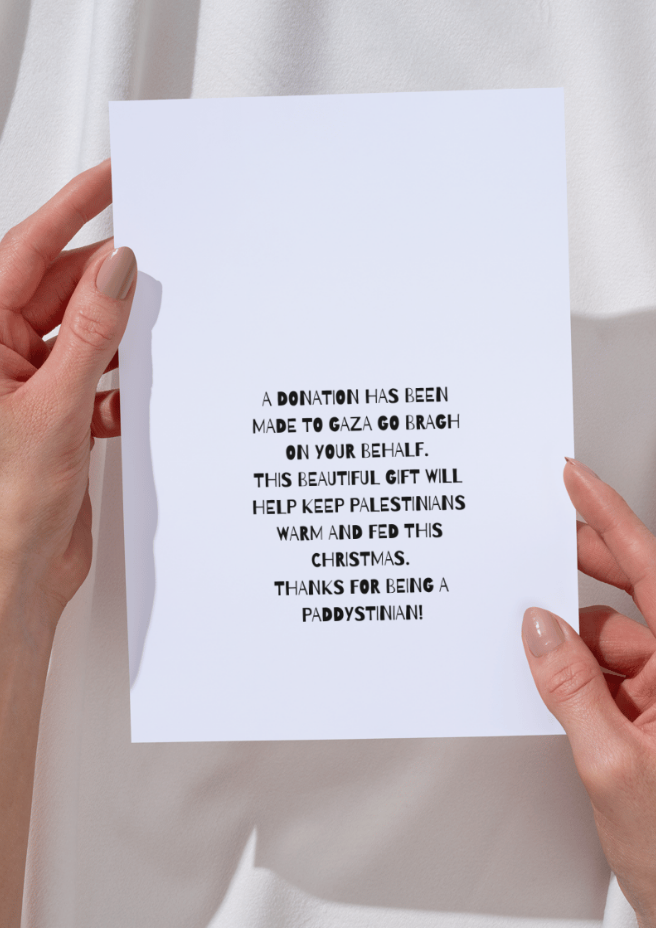 A DONATION HAS BEEN
MADE TO GAZA GO BRAGH
ON YOUR BEHALF.
THIS BEAUTIFUL GIFT WILL
HELP KEEP PALESTINIANS
WARM AND FED THIS
CHRISTMAS.
THANKS FOR BEING A
PADDYSTINIAN!